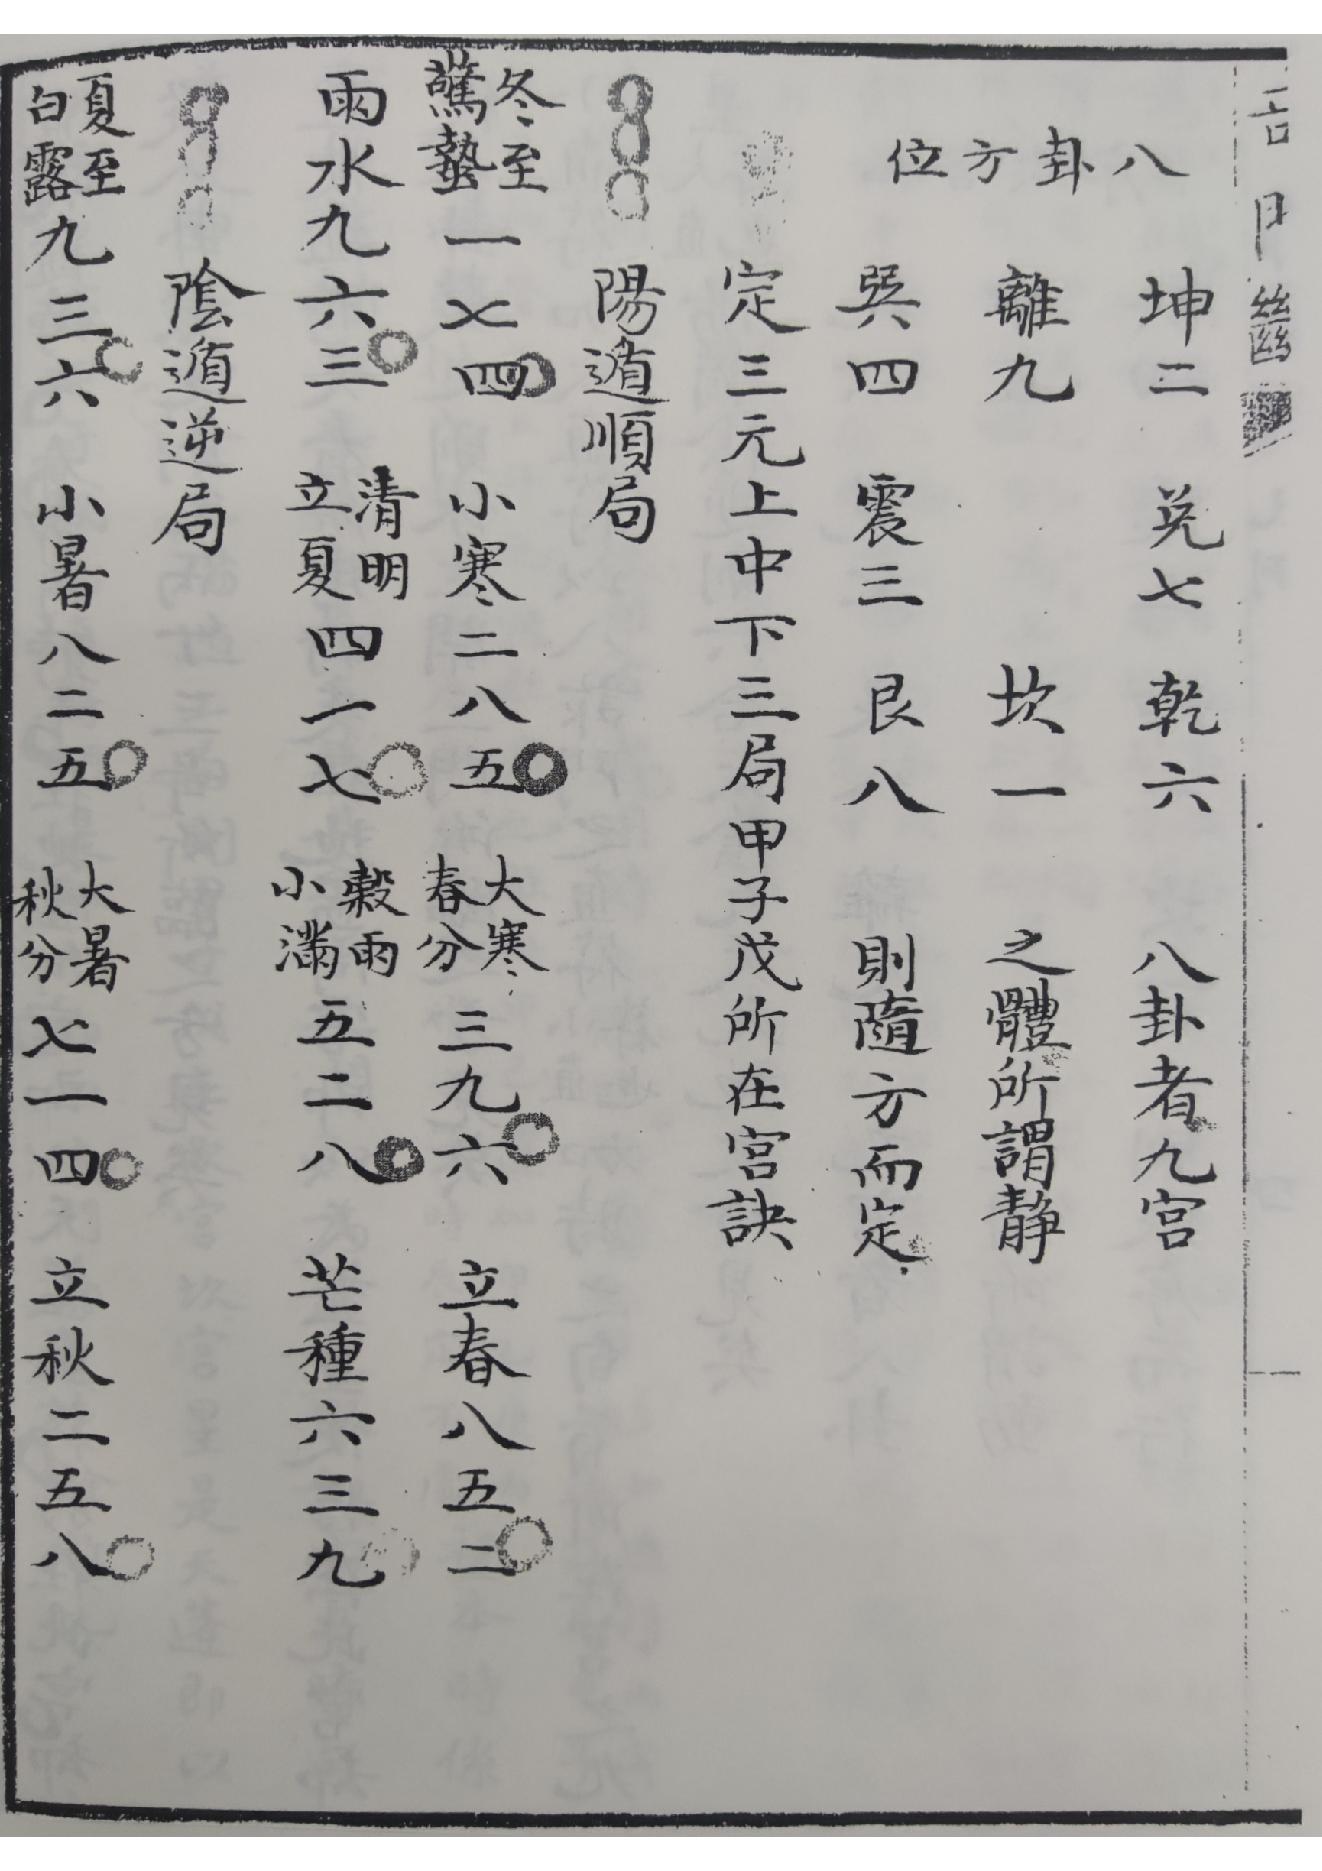 八卦方位
坤二 兌七 乾六 八卦者九宮
離九 坎一 之體所謂静
巽四 震三 艮八 則隨方而定
定三元上中下三局甲子戊所在宮訣
陽遁順局
冬至驚蟄一七四 小寒二八五 大寒春分三九六 立春八五二
雨水九六三 清明立夏四一七 穀雨小滿五二八 芒種六三九
陰遁逆局
夏至白露九三六 小暑八二五 大暑秋分七一四 立秋二五八